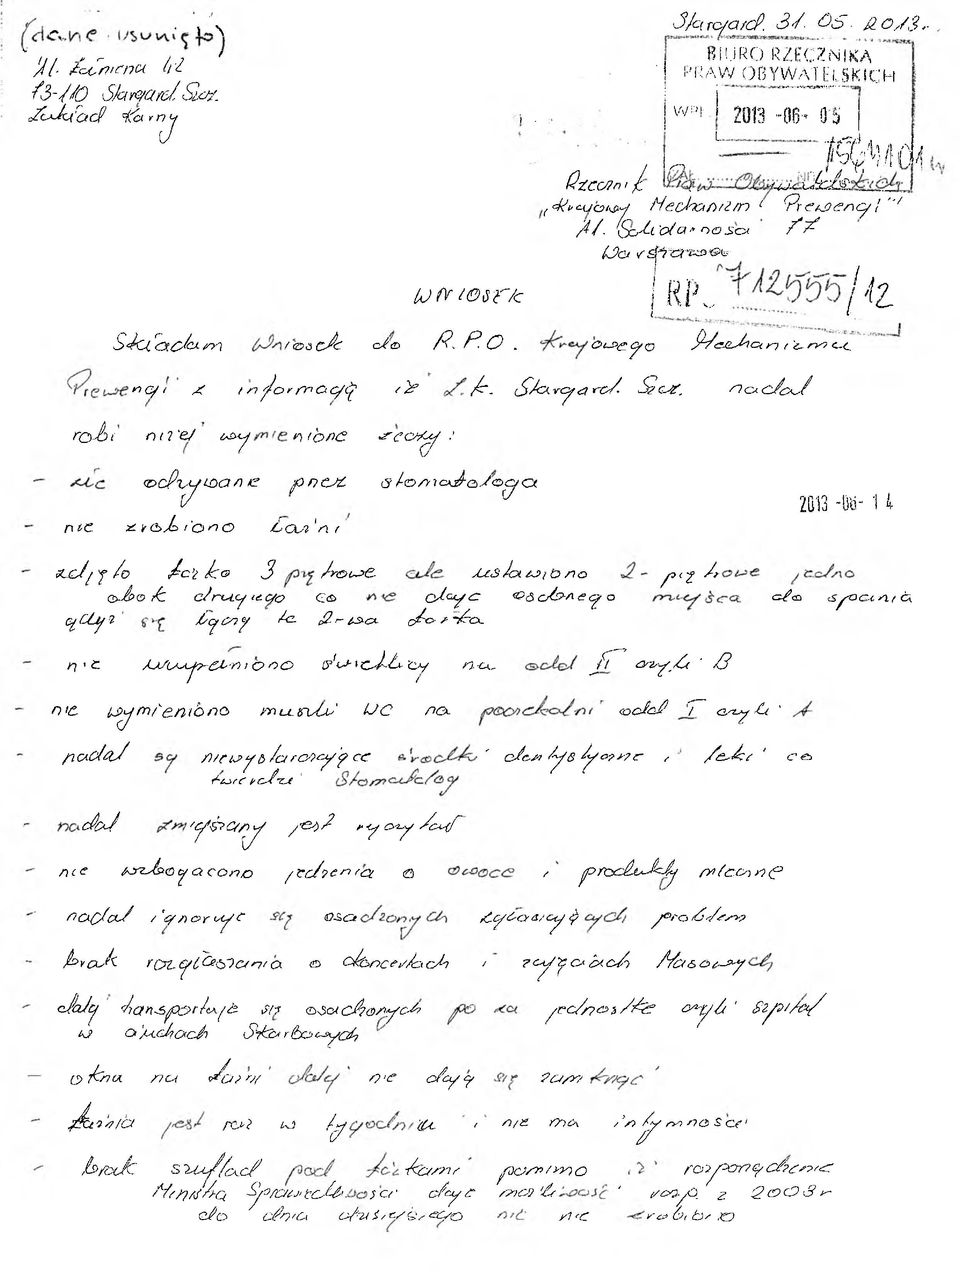 (dane usunięto)
Ul. Żamena 1/2
73-110 Stargard. Szcz.
Zakład Karny
Stargard. 31. 05. 2013r.
BIURO RZECZNIKA
PRAW OBYWATELSKICH
WPŁ.
2013 -06- 05
ZAŁ. NR
Rzecznik Praw Obywatelskich
„Krajowy Mechanizm Prewengi"
Al. Solidarności 77
Warszawa
RP. 712555/12
WNIOSEK
Składam Wniosek do R.P.O. Krajowego Mechanizmu
Prewengi z informagą iż Z.k. Stargard. Szcz. nadal
robi niżej wymienione żeczy:
- złe odzywanie przez stomatologa
2013 -06- 14
- nie zrobiono Łaźni
- zdjęto łożko 3 piętrowe ale ustawiono 2- piętrowe jedno
obok drugiego co nie daje osobnego miejsca do spania
gdyż się łączy te 2-wa łożka
- nie uzupełniono świetlicy na odd II czyli B
- nie wymieniono muszli WC na poorekalni odd I czyli A
- nadal są niewystarczające środki dentystyczne i leki co
twierdzi Stomatolog
- nadal zmiejszany jest ryczyłaut
- nie wzbogacono jedzenia o owoce i produkty mleczne
- nadal ignoruje się osadzonych zgłaszających problem
- brak rozgłaszania o koncertach i zajęciach Masowych
- dalej transportuje się osadzonych po za jednostke czyli szpital
w ałuchach Skarbowych
- okna na łaźni dalej nie dają się zamknąć
- Łaźnia jest raz w tygodniu i nie ma intymności
- brak szuflad pod łożkami pomimo iż rozporządzenie
Ministra Sprawiedliwości daje możliwość rozp. z 2003r
do dnia dzisiejszego nic nie zrobiono